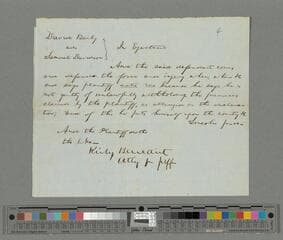 4
David Baily
vs
Samuel Davidson
In Ejectment
And the said defendant comes
and defends the force and injury when, where &c
and says plaintiff actio non because he says he is
not guilty of unlawfully withholding the premises
claimed by the plaintiff, as alleged in the declara-
tion, and of this he puts himself upon the country &c
Lincoln p.d.
And the Plaintiff doth
the like
Kirby Benedict
Atty for Plff